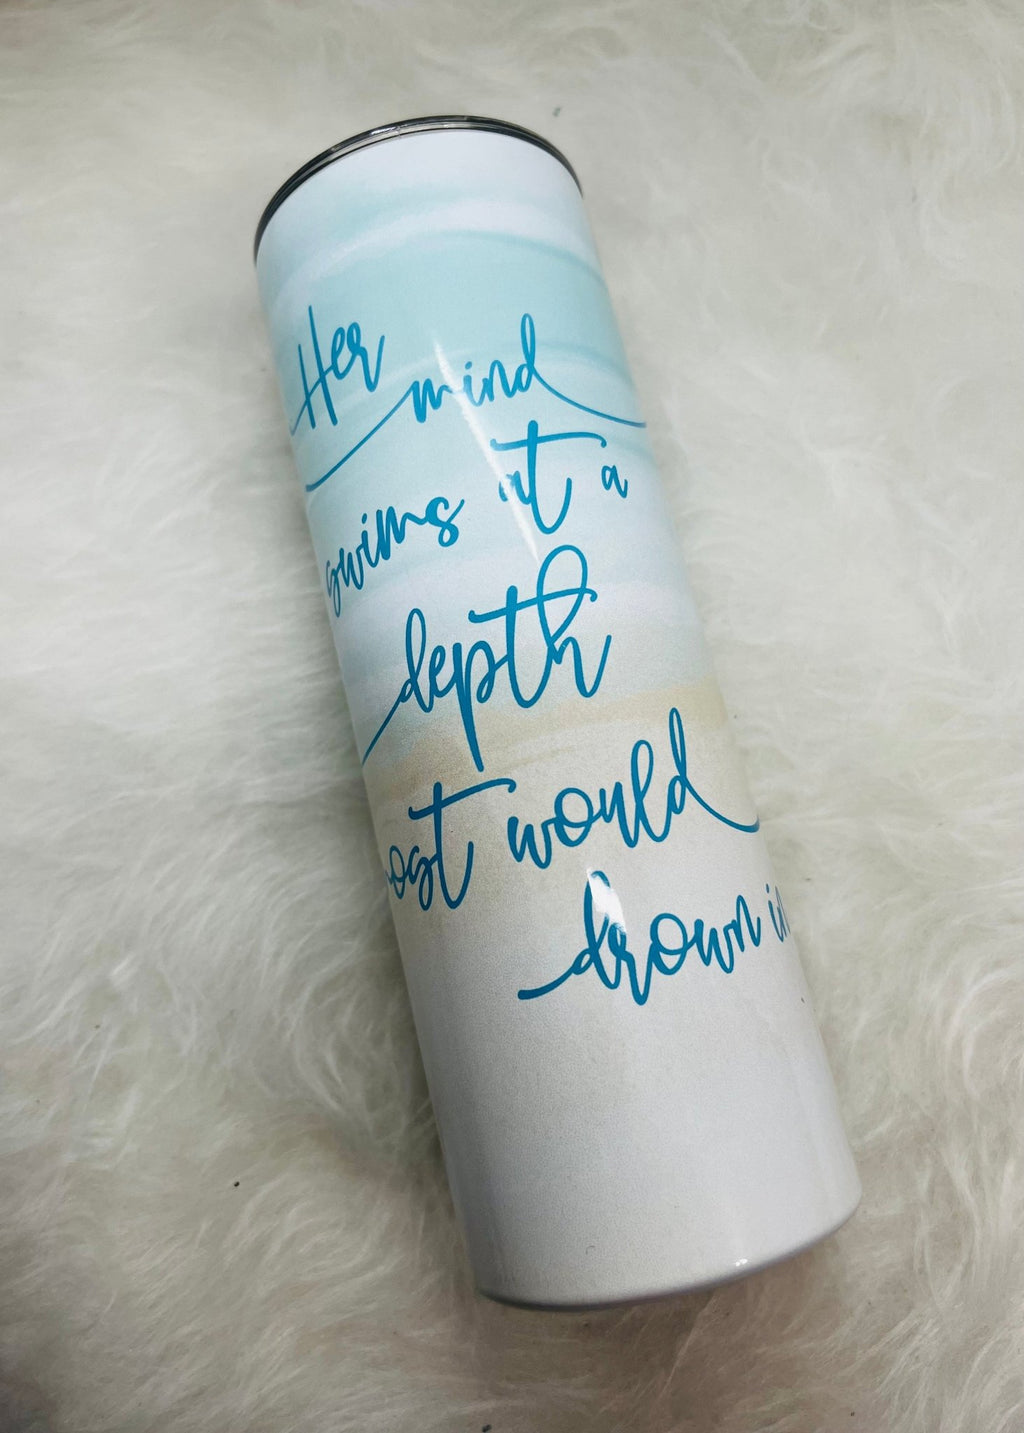 Her
mind
swims at a
depth
most would
drown in